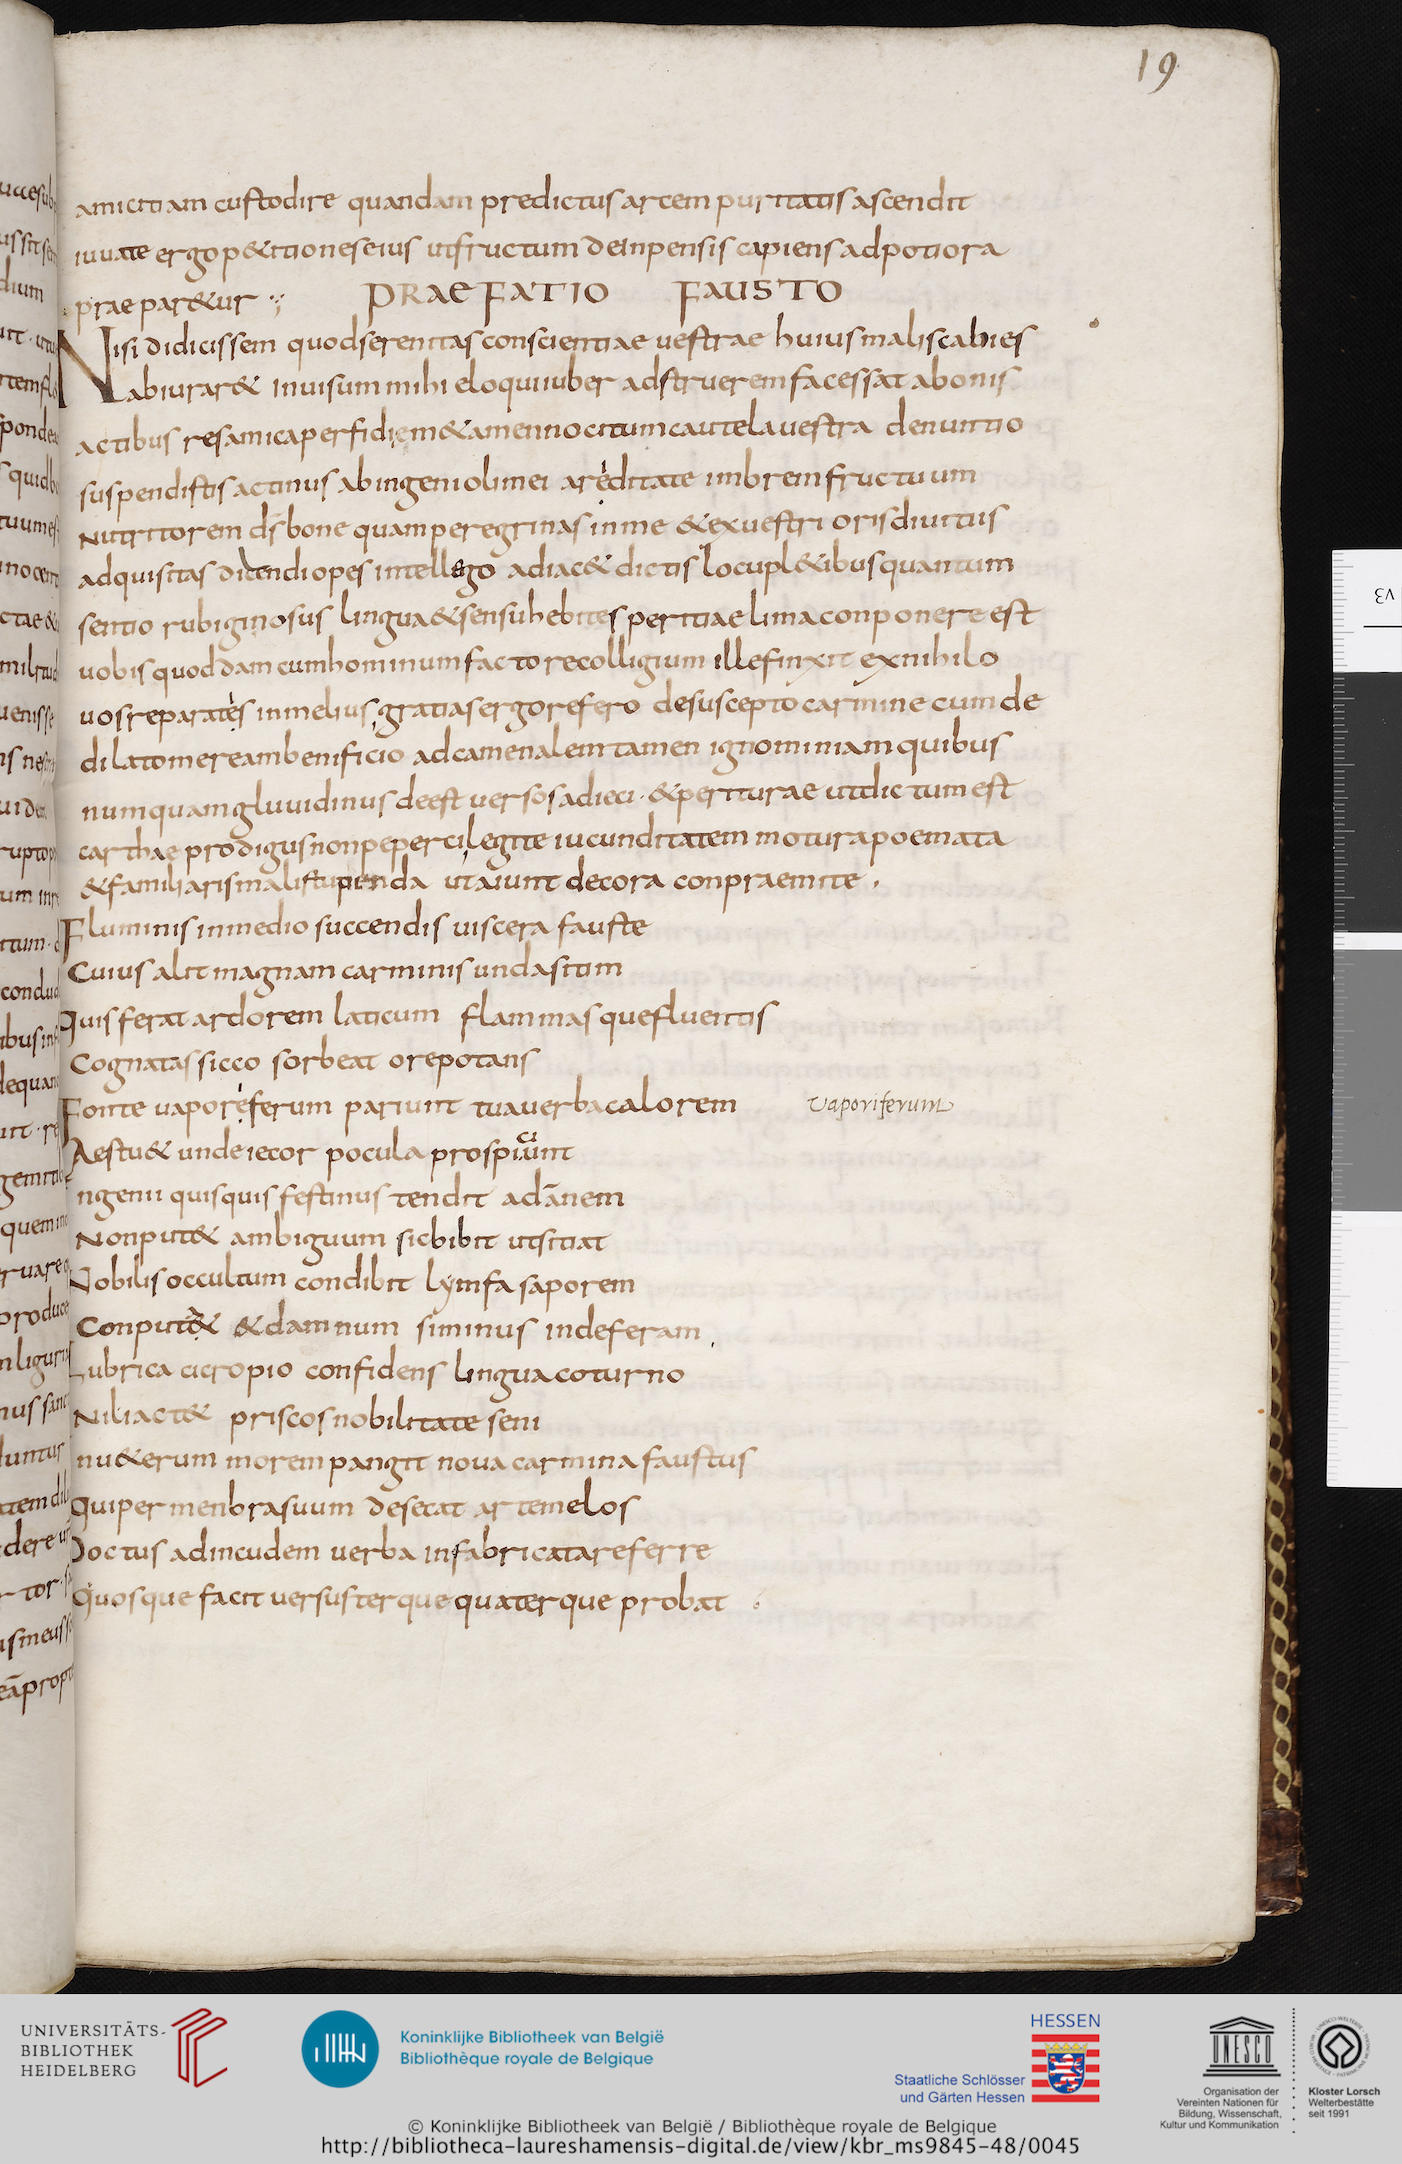 19
amicitiam custodire quandam predictus arcem puritatis ascendit
iuvate ergo p&itiones eius ut fructum de inpensis capiens ad potiora
praepar&ur
PRAEFATIO FAUSTO
Nisi didicissem quod serenitas conscientiae uestrae huius mali scabies
abiurar& inuisum mihi eloquii uber adstruerem facessat a bonis
actibus res amica perfidiem & amenno citum cautela uestra denuntio
suspendistis actinus ab ingenioli mei areditate imbrem fructuum
nutritorem ds bone quam peregrinas in me & ex uestri oris diuitiis
adquisitas dicendi opes intellego adiac& dictis locupl&ibus quantum
sentio rubiginosus lingua & sensu hebites peritiae lima conponere est
uobis quoddam cum hominum factore colligium ille finxit ex nihilo
uos reparates in melius gratias ergo refero de suscepto carmine cum de
dilato meream benificio ad camenalem tamen ignominiam quibus
numquam gluuidinus deest uersos adieci · & periturae ut dictum est
carthae prodigus non peperci legite iucunditatem motura poemata
& familiaris mali stupenda ut aiunt decora conpraemite
Fluminis in medio succendis uiscera fauste
Cuius alit magnam carminis unda sitim
Quis ferat ardorem laticum flammasque fluentis
Cognatas sicco sorbeat ore potans
Fonte uaporeferum pariunt tua uerba calorem
Vaporiferum
Aestu& unde iecor pocula prospiciunt
ngenii quisquis festinus tendit ad ānem
Non put& ambiguum sic bibit ut sitiat
Nobilis occultum condibit lymfa saporem
Conput& & damnum si minus inde feram
Lubrica cicropio confidens lingua coturno
Nil iact& priscos nobilitate seni
nu&erum morem pangit noua carmina faustus
Qui per menbra suum desecat arte melos
Doctus ad incudem uerba infabricata referre
Quosque facit uersus terque quaterque probat
UNIVERSITÄTS-
BIBLIOTHEK
HEIDELBERG
Koninklijke Bibliotheek van België
Bibliothèque royale de Belgique
HESSEN
Staatliche Schlösser
und Gärten Hessen
UNESCO
Organisation der
Vereinten Nationen für
Bildung, Wissenschaft,
Kultur und Kommunikation
Kloster Lorsch
Welterbestätte
seit 1991
© Koninklijke Bibliotheek van België / Bibliothèque royale de Belgique
http://bibliotheca-laureshamensis-digital.de/view/kbr_ms9845-48/0045